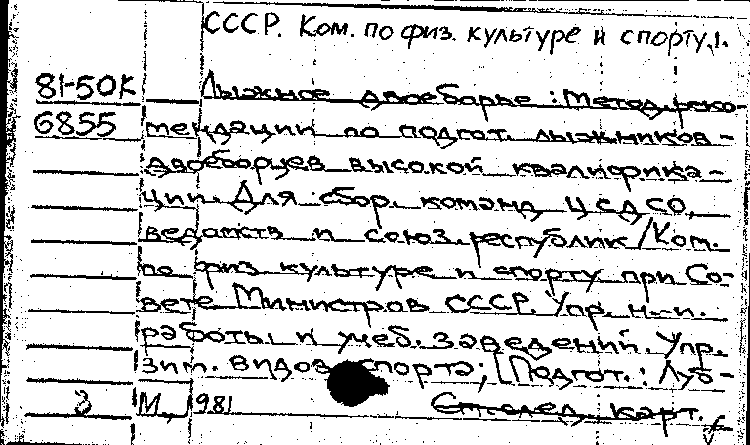 СССР. Ком. по физ. культуре и спорту.
81-50К Лыжное двоеборье : Метод. реко-
6855 мендации по подгот. лыжников-
двоеборцев высокой квалифика-
ции. Для сбор. команд ЦС ДСО,
ведомств и союз. республик / Ком.
по физ. культуре и спорту при Со-
вете Министров СССР. Упр. н.-и.
работы и учеб. заведений. Упр.
зим. видов спорта; [Подгот.: Луб-
З М., 1981 См. след. карт.